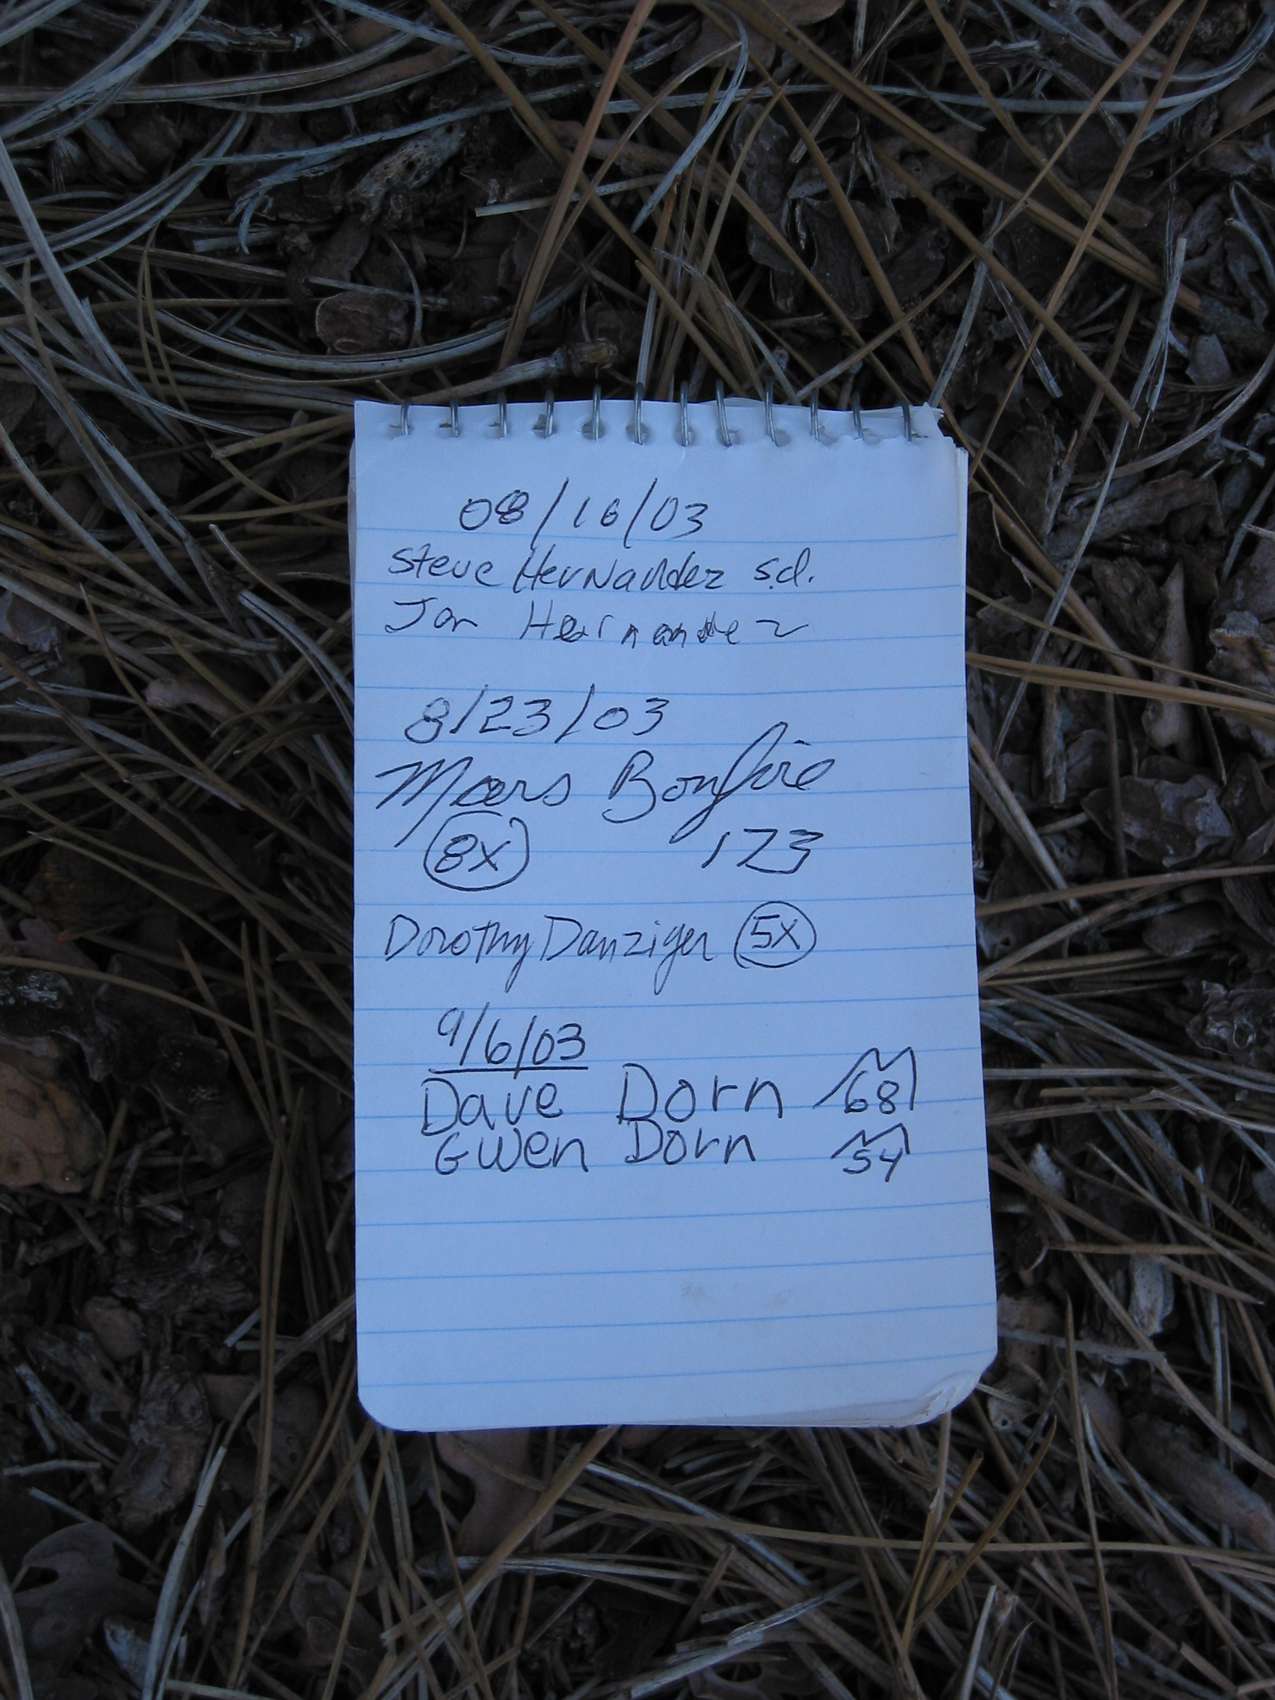 08/16/03
Steve Hernandez s.d.
Jon Hernandez
8/23/03
Mars Bonfire
8X 173
Dorothy Danziger 5X
9/6/03
Dave Dorn 68
Gwen Dorn 54